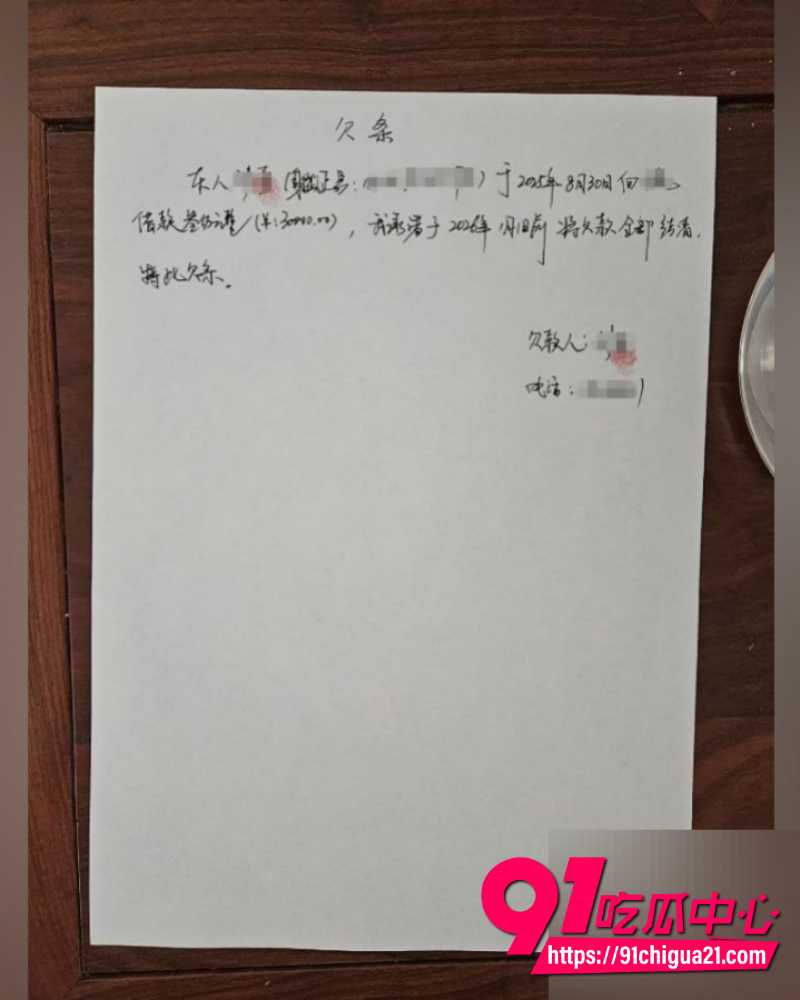 欠条
本人 (身份证号: ) 于2025年8月30日向
借款叁万元整 (¥:30000.00), 我承诺于2026年1月1日前将欠款全部结清。
特此欠条。
欠款人:
电话:
91吃瓜中心
https://91chigua21.com